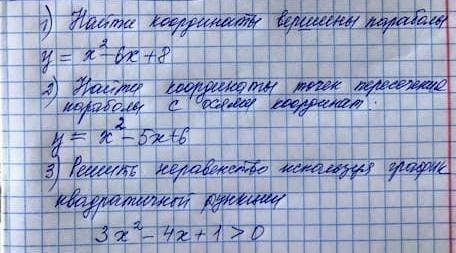 1) Найти координаты вершины параболы
y = x² - 6x + 8
2) Найти координаты точек пересечения
параболы с осями координат.
y = x² - 5x + 6
3) Решить неравенство используя график
квадратичной функции
3x² - 4x + 1 > 0